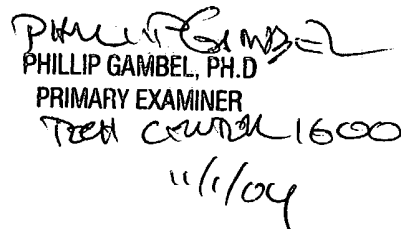 PHILLIP GAMBEL
PHILLIP GAMBEL, PH.D
PRIMARY EXAMINER
TECH CENTER 1600
11/1/04